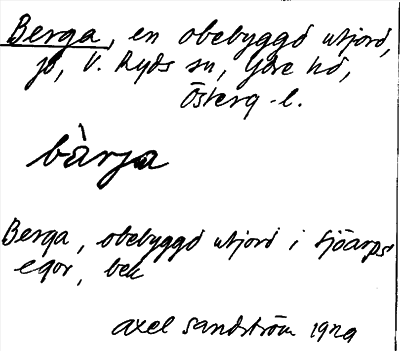 Berga, en obebyggd utjord,
jb, V. Ryds sn, Ydre hd,
Österg. l.
bàrja
Berga, obebyggd utjord i Sjöarps
egor, bek
Axel Sandström 1929